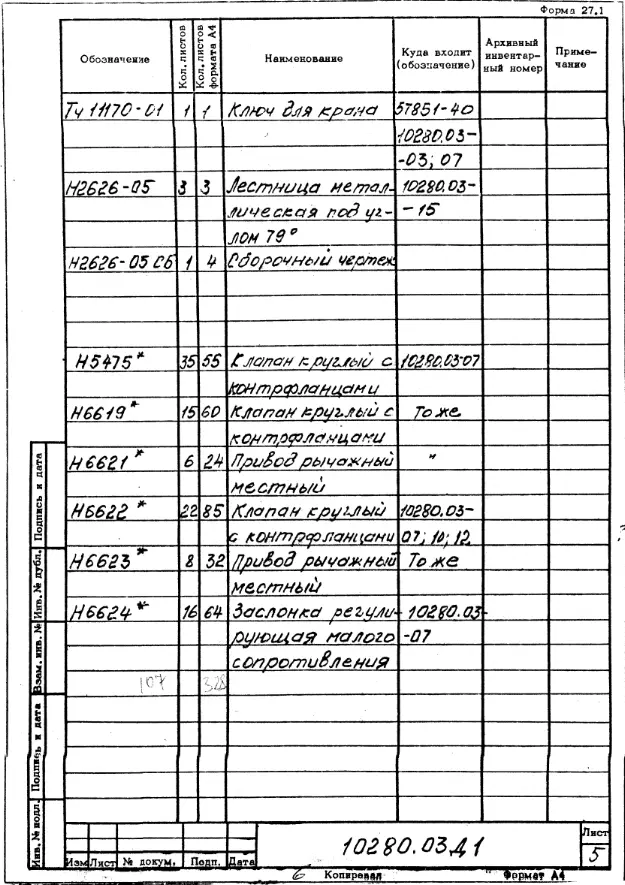 Форма 27.1
Обозначение | Кол. листов | Кол. листов формата А4 | Наименование | Куда входит (обозначение) | Архивный инвентар-ный номер | Приме-чание
Тч 11170-01 | 1 | 1 | Ключ для крана | 57851-40
10280.03-
-03; 07
Н2626-05 | 3 | 3 | Лестница метал- | 10280.03-
лическая под уг- | -15
лом 79°
Н2626-05 Сб | 1 | 4 | Сборочный чертеж
Н5475* | 35 | 55 | Клапан круглый с | 10280.03-07
контрфланцами
Н6619* | 15 | 60 | Клапан круглый с | То же
контрфланцами
Н6621* | 6 | 24 | Привод рычажный | "
местный
Н6622* | 22 | 85 | Клапан круглый | 10280.03-
с контрфланцами | 07; 10; 12
Н6623* | 8 | 32 | Привод рычажный | То же
местный
Н6624* | 16 | 64 | Заслонка регули- | 10280.03-
рующая малого | -07
сопротивления
107 | 328
Подпись и дата
Инв. № дубл.
Взам. инв. №
Подпись и дата
Инв. № подл.
Изм Лист № докум. Подп. Дата
10280.03Д1
Лист
5
6 Копировал Формат А4